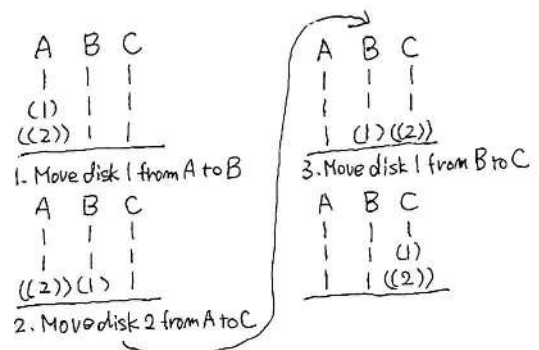 A B C
| | |
(1) | |
((2)) | |
1. Move disk 1 from A to B
A B C
| | |
| | |
((2)) (1) |
2. Move disk 2 from A to C
A B C
| | |
| | |
| (1) ((2))
3. Move disk 1 from B to C
A B C
| | |
| | (1)
| | ((2))